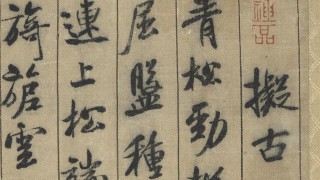 擬古
青松勁挺
屈盤種
連上松端
旖旎雲